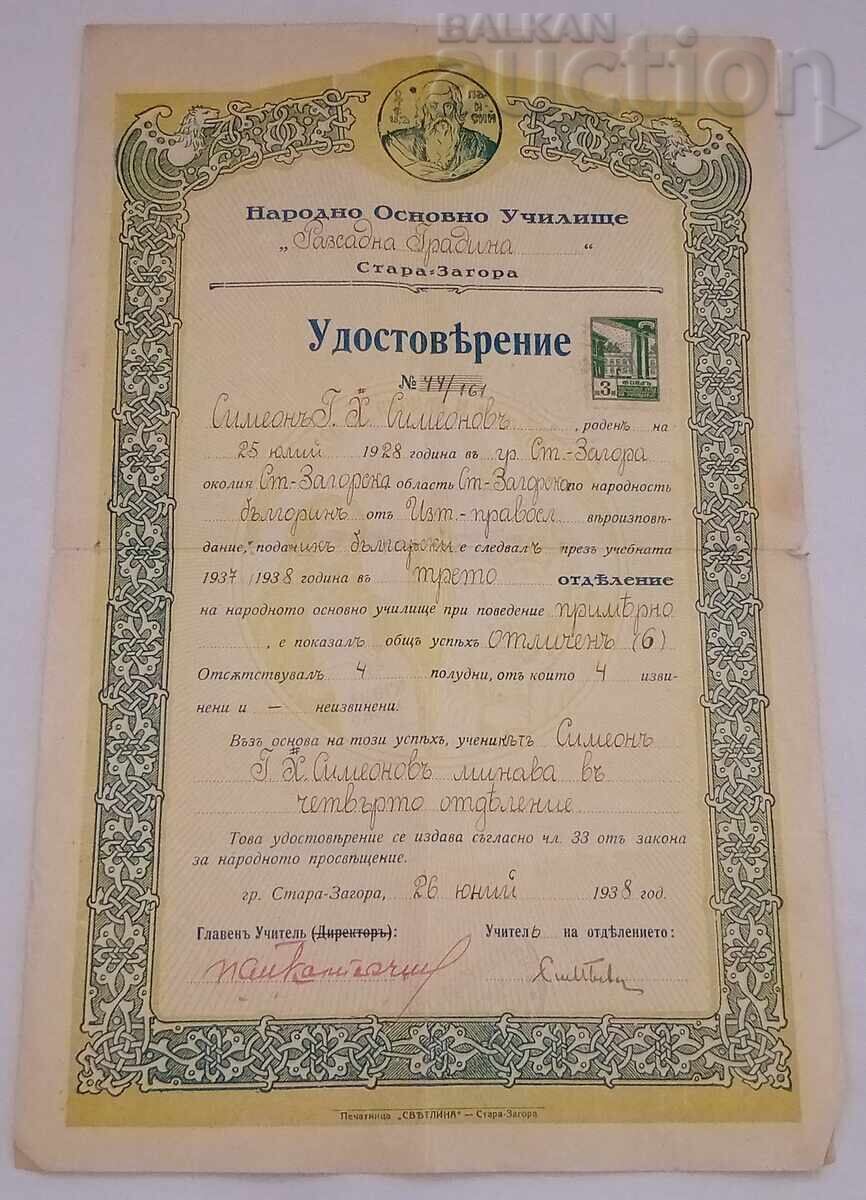 BALKAN
auction
ОТЕЦЪ ПАИСИЙ
Народно Основно Училище
„Разсадна Градина“
Стара-Загора
Удостовѣрение
№ 44/161
Симеонъ Г. Х. Симеоновъ, роденъ на
25 юлий 1928 година въ гр. Ст.-Загора
околия Ст.-Загорска область Ст-Загорска по народность
българинъ отъ Изт.-правосл вѣроизповѣ-
дание, подачикъ български е следвалъ презъ учебната
1937/1938 година въ трето отдѣление
на народното основно училище при поведение примѣрно
, е показалъ общъ успѣхъ отличенъ (6)
Отсѫтствувалъ 4 полудни, отъ които 4 изви-
нени и — неизвинени.
Възъ основа на този успѣхъ, ученикътъ Симеонъ
Г. Х. Симеоновъ минава въ
четвърто отдѣление
Това удостовѣрение се издава съгласно чл. 33 отъ закона
за народното просвѣщение.
гр. Стара-Загора, 26 юний 1938 год.
Главенъ Учитель (Директоръ): Учитель на отдѣлението:
Печатница „СВѢТЛИНА“ — Стара-Загора